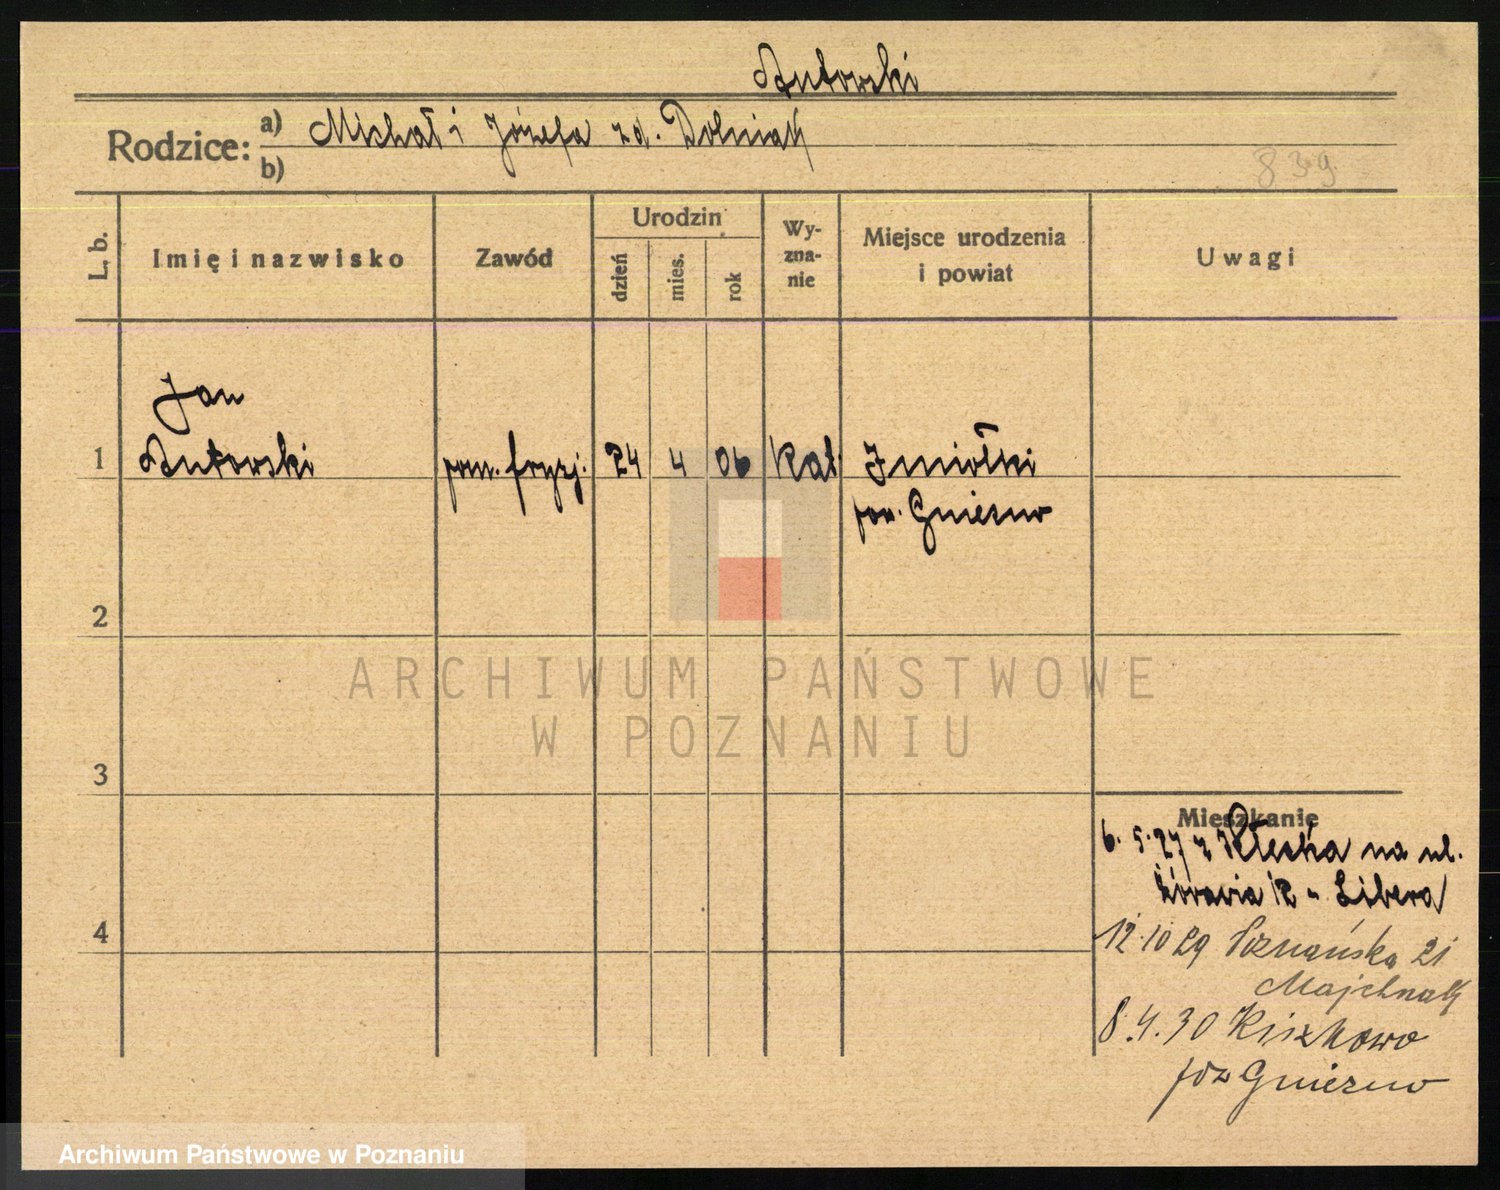 Butowski
Rodzice:
a) Michał i Józefa zd. Dolniak
b)
839
L. b.
Imię i nazwisko
Zawód
Urodzin
dzień
mies.
rok
Wy-
zna-
nie
Miejsce urodzenia
i powiat
Uwagi
Jan
1 Butowski pom. fryzj. 24 4 06 Kat. Imiołki
pow. Gniezno
2
ARCHIWUM PAŃSTWOWE
W POZNANIU
3
Mieszkanie
6. 5. 27 z Kłecka na ul.
12 - Libera
4
12.10 29 Poznańska 21
Majchrzak
8.4.30 Kiszkowo
pow Gniezno
Archiwum Państwowe w Poznaniu